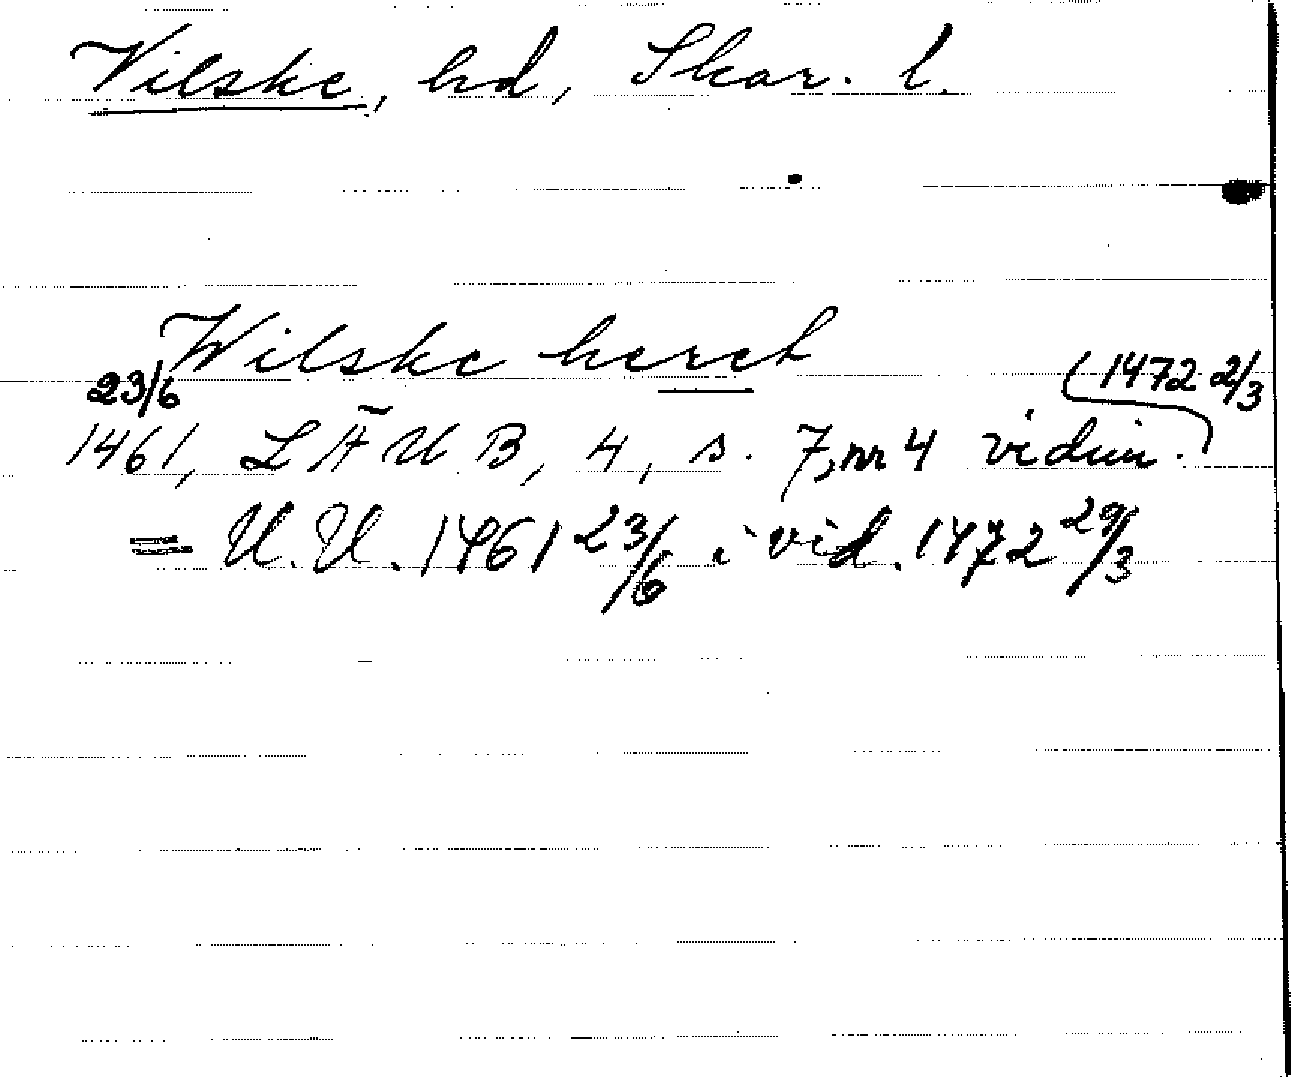 Vilske, hd, Skar. l.
Wilske heret
23/6 (1472 2/3
1461, LÄUB, 4, s. 7, nr 4 vidim.)
= U.U. 1461 23/6 i vid. 1472 29/3